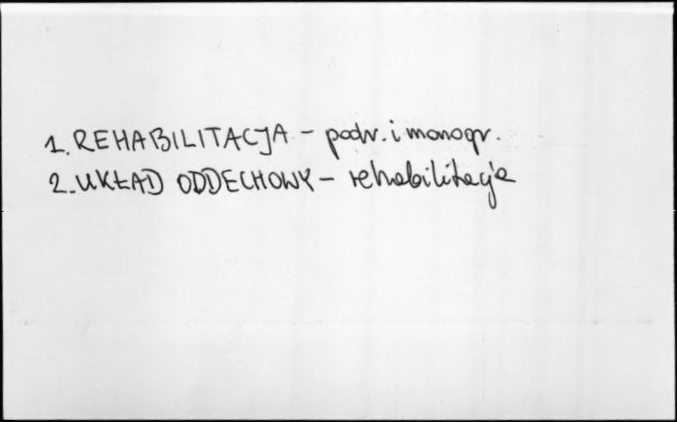 1. REHABILITACJA - podr. i monogr.
2. UKŁAD ODDECHOWY - rehabilitacja